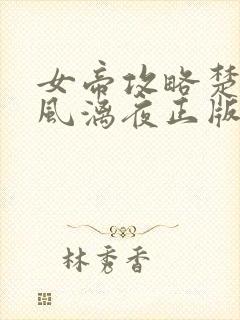 女帝攻略楚
风漓夜正版
林秀香